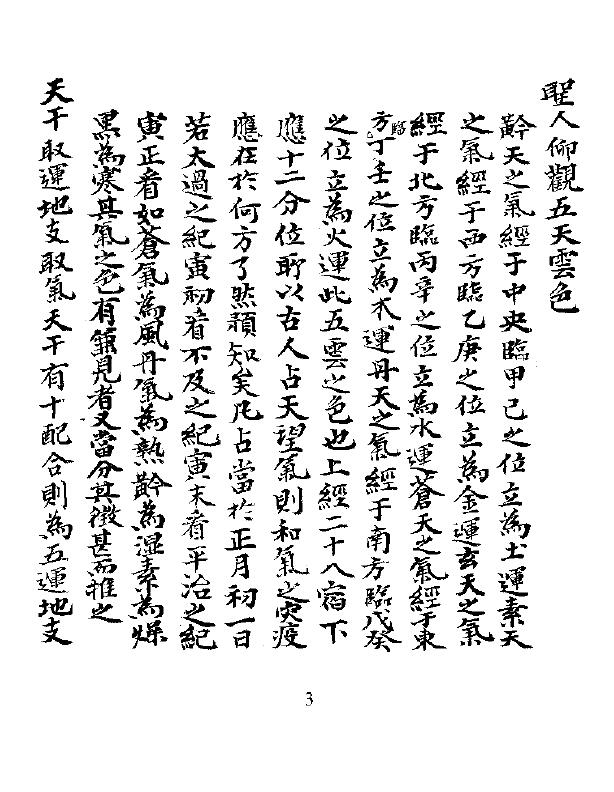 聖人仰觀五天雲色
齡天之氣經于中央臨甲己之位立為土運素天
之氣經于西方臨乙庚之位立為金運玄天之氣
經于北方臨丙辛之位立為水運蒼天之氣經于東
方臨丁壬之位立為木運丹天之氣經于南方臨戊癸
之位立為火運此五雲之色也上經二十八宿下
應十二分位所以古人占天望氣則和氣之灾疫
應在於何方了然預知矣凡占當於正月初一日
若太過之紀寅初看不及之紀寅末看平治之紀
寅正看如蒼氣為風丹氣為熱齡為湿素為燥
黑為寒其氣之色有見者又當分其微甚而推之
天干取運地支取氣天干有十配合則為五運地支
3